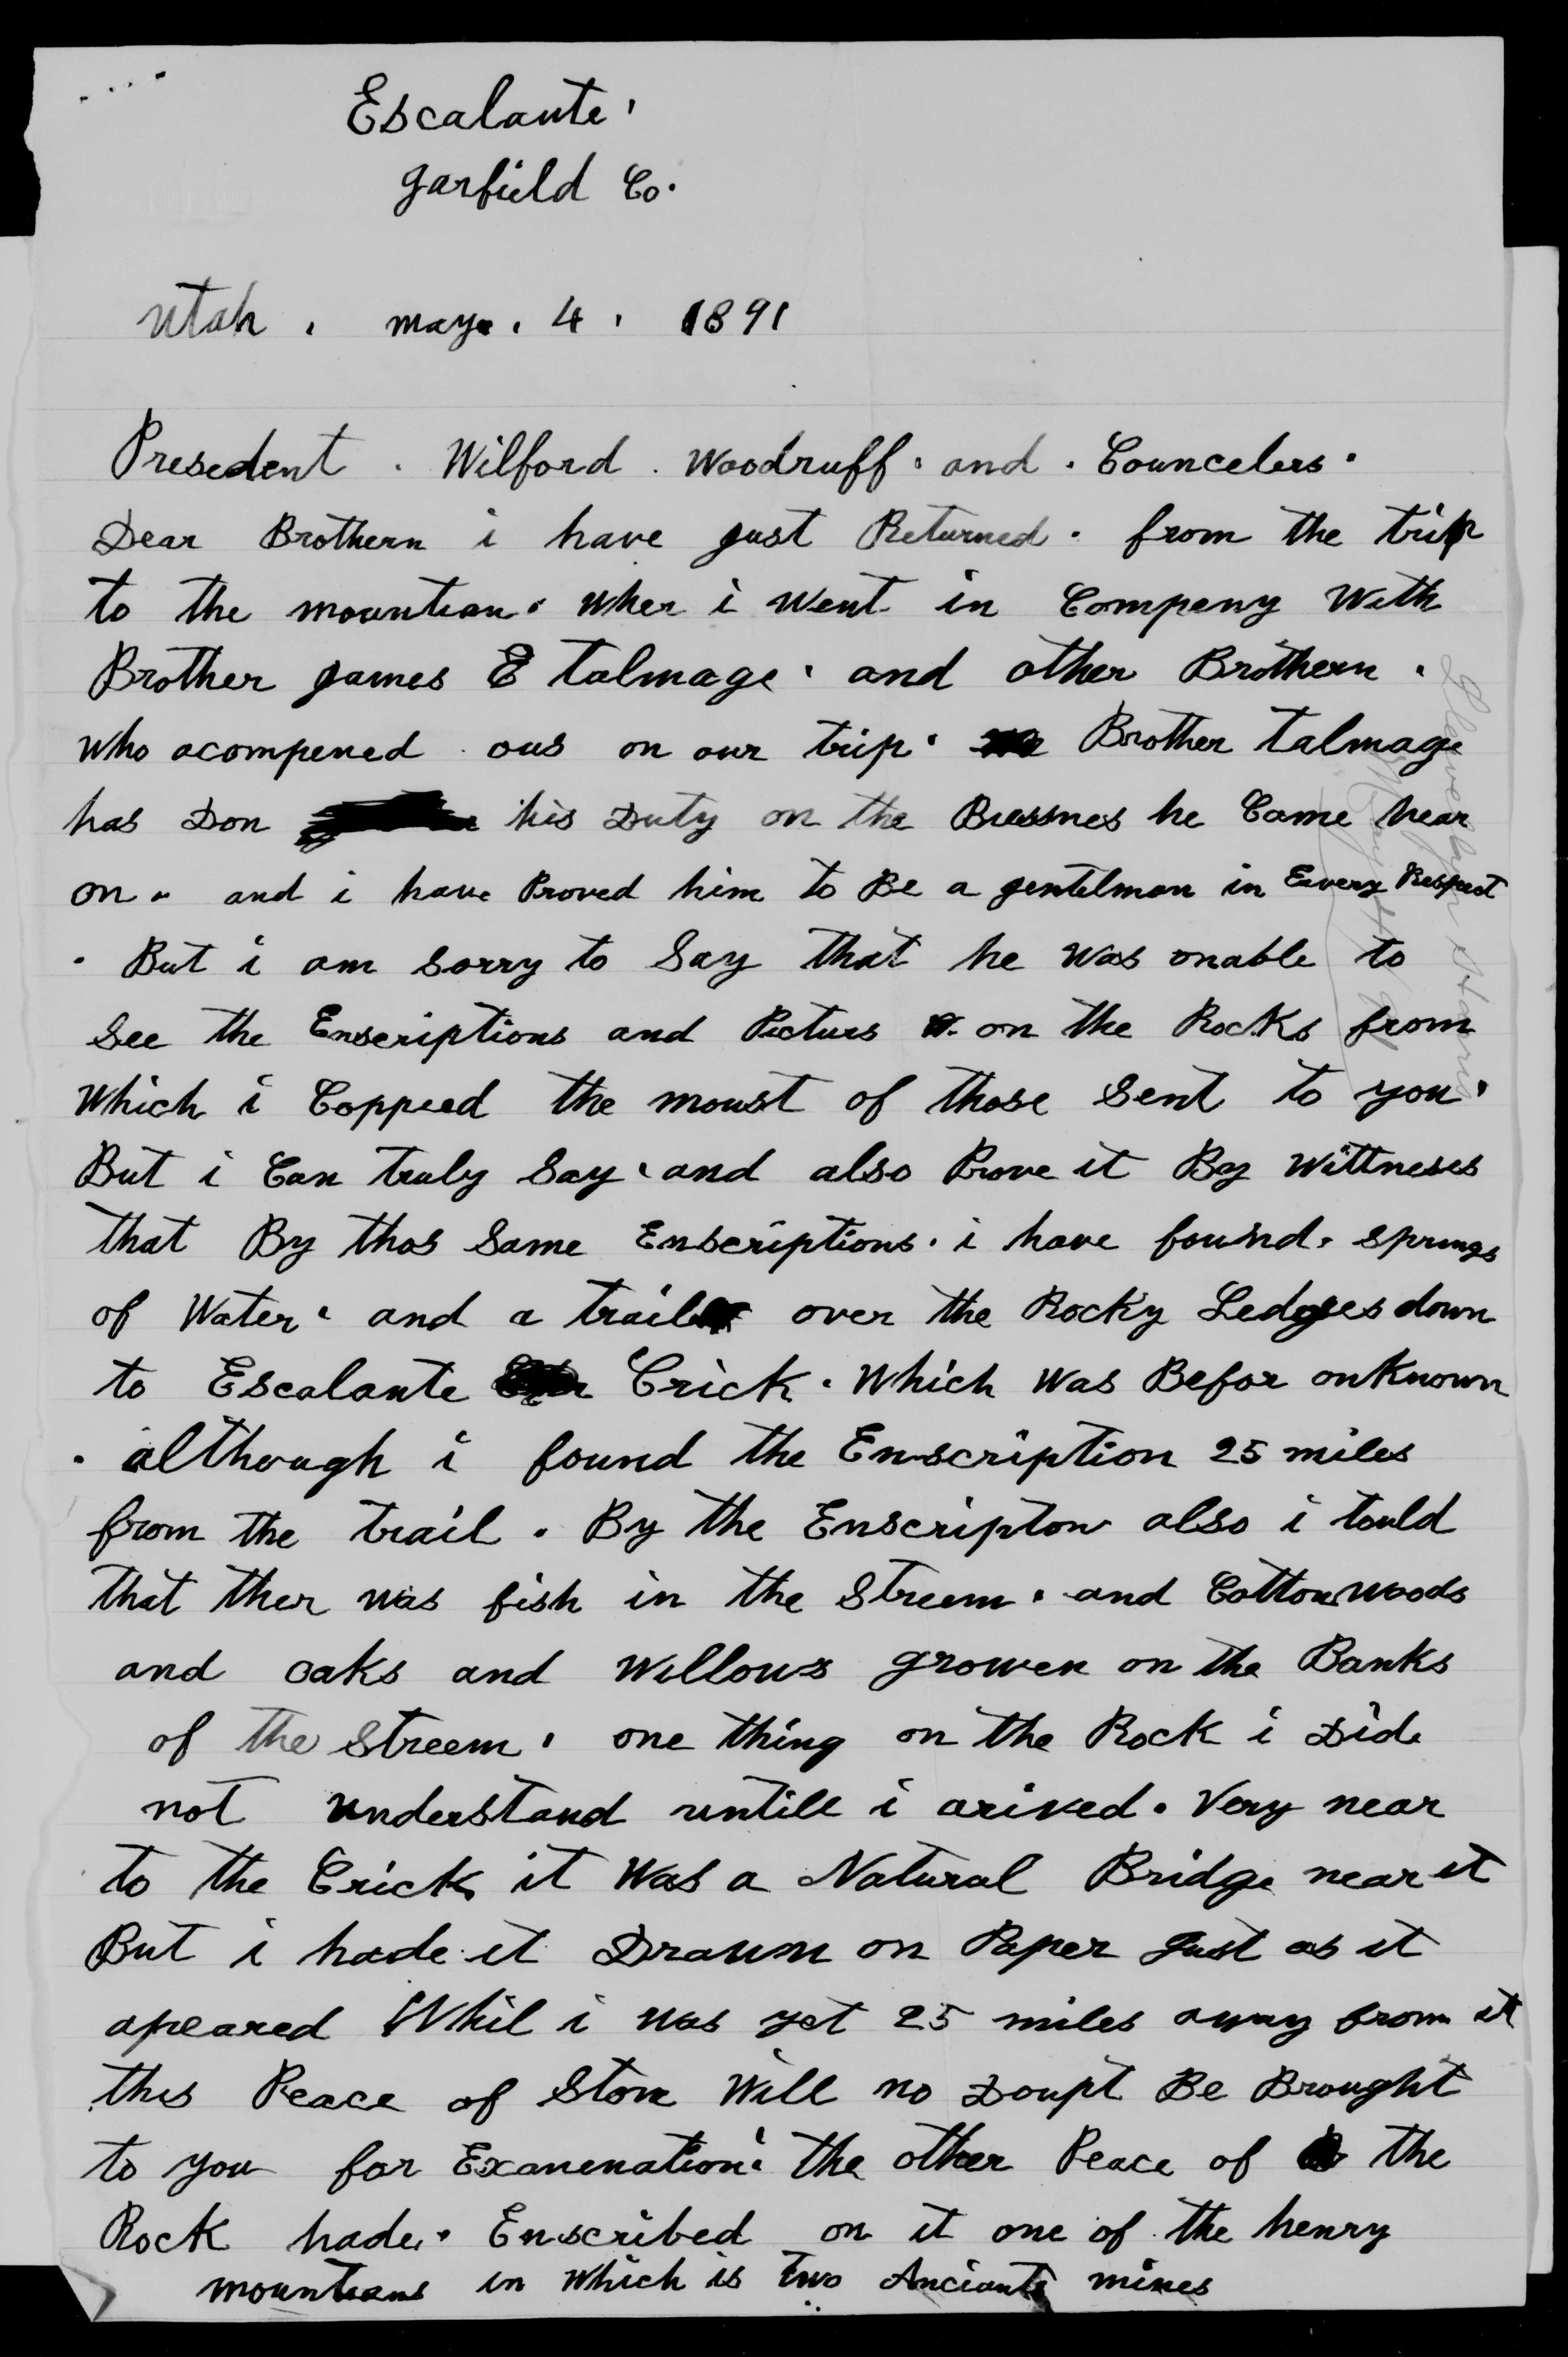 Escalante '
garfield Co.
Utah . may . 4 . 1891
Presedent . Wilford . Woodruff . and . Councelers .
Dear Brothern i have just Returned . from the trip
to the mountian . Wher i Went in Compeny With
Brother james E talmage . and other Brothern .
who acompened ous on our trip . Brother talmage
has Don his Duty on the Bussnes he Came hear
on . and i have Proved him to Be a gentelman in Every Respect
. But i am sorry to Say that he was onable to
See the Enscriptions and Picturs on the Rocks from
Which i Coppied the moust of those Sent to you .
But i Can truly Say . and also Prove it By Wittneses
that By thos Same Enscriptions . i have found . springs
of Water . and a trail over the Rocky Ledges down
to Escalante Crick . Which Was Befor onknown
. although i found the Enscription 25 miles
from the trail . By the Enscripton also i tould
that ther was fish in the Streem . and Cottonwoods
and oaks and Willows growen on the Banks
of the Streem . one thing on the Rock i Did
not understand untill i arived . Very near
to the Crick it Was a Natural Bridge near it
But i hade it Drawn on Paper Just as it
apeared Whil i was yet 25 miles away from it
this Peace of Ston Will no Doupt Be Brought
to you for Exanenation . the other Peace of the
Rock hade . Enscribed on it one of the henry
mountians in Which is two Anciant mines